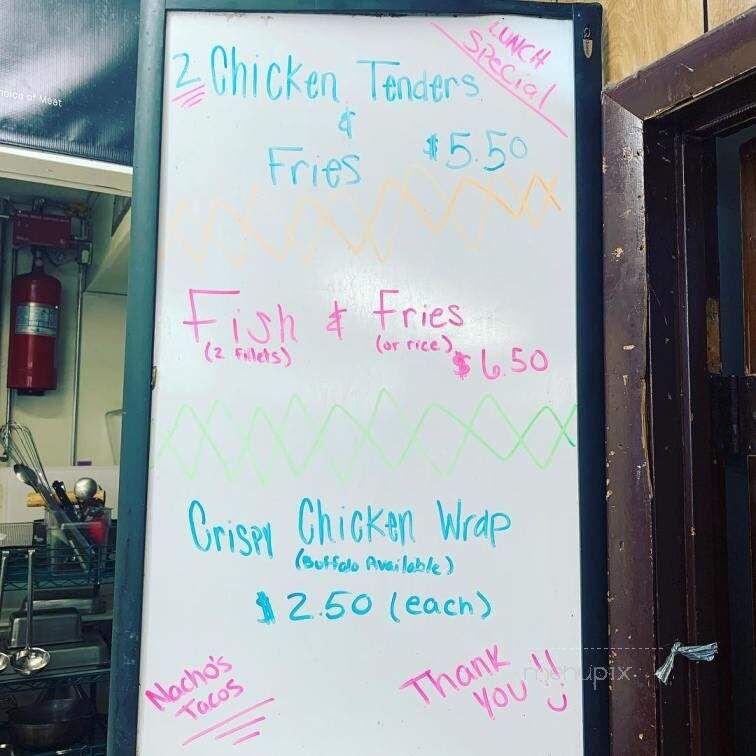 hoice of Meat
LUNCH
Special
2 Chicken Tenders
&
Fries $5.50
Fish & Fries
(2 Fillets) (or rice)
$6.50
Crispy Chicken Wrap
(Buffalo Available)
$2.50 (each)
Nacho's
Tacos
Thank
You !!
menupix